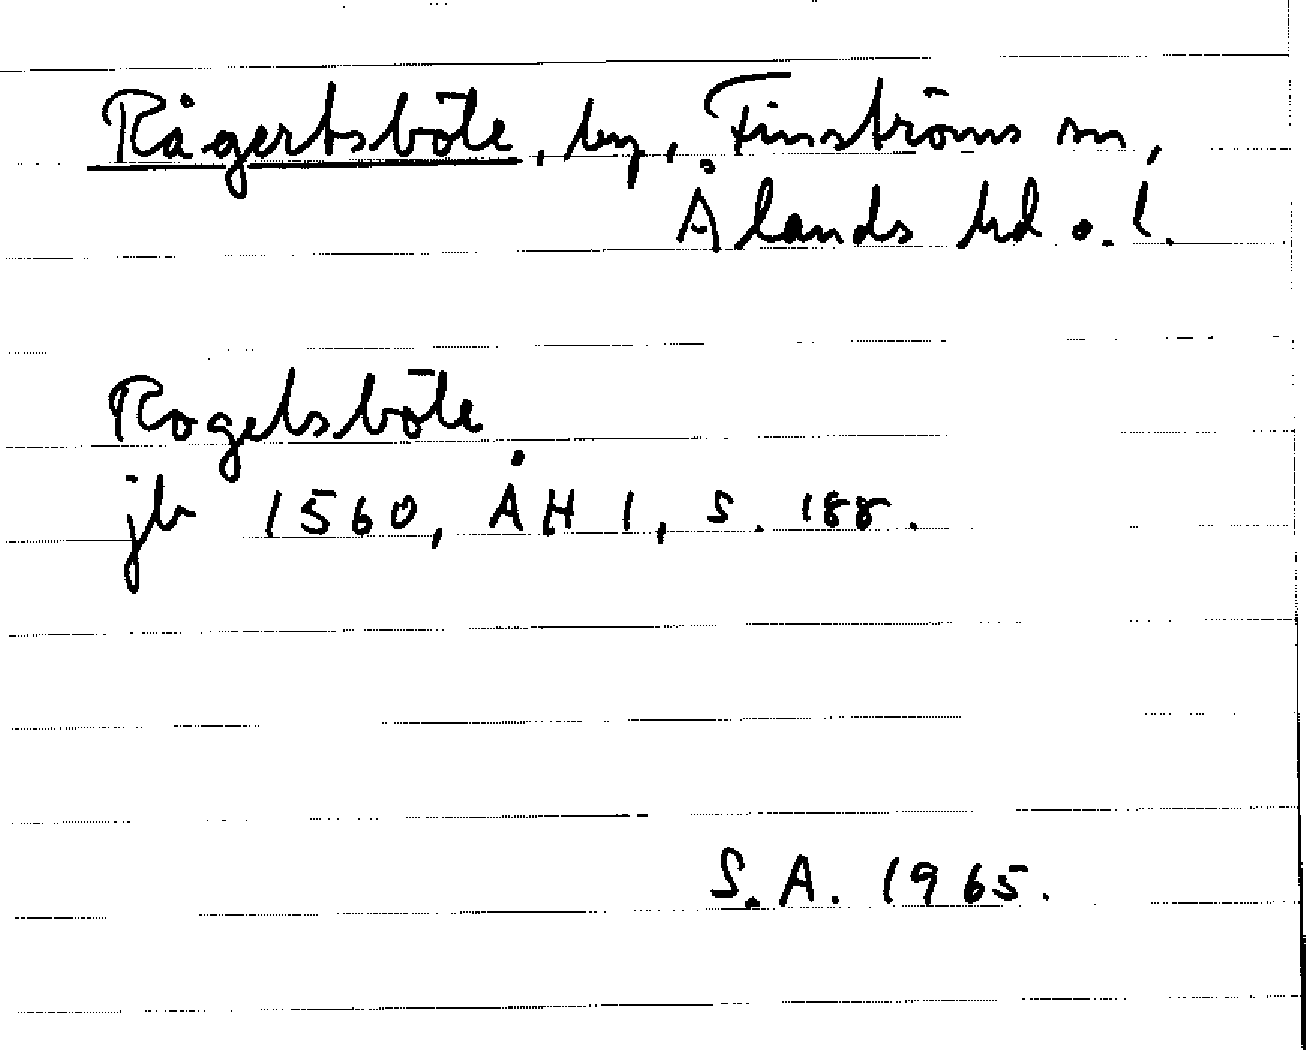 Rågertsböte, by, Finströms sn,
Ålands hd o. l.
Rogelsböle
jb 1560, ÅH 1, s. 188.
S.A. 1965.